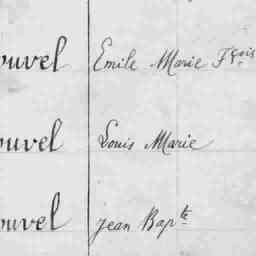 ouvel Emile Marie Fçois
ouvel Louis Marie
ouvel Jean Bapte